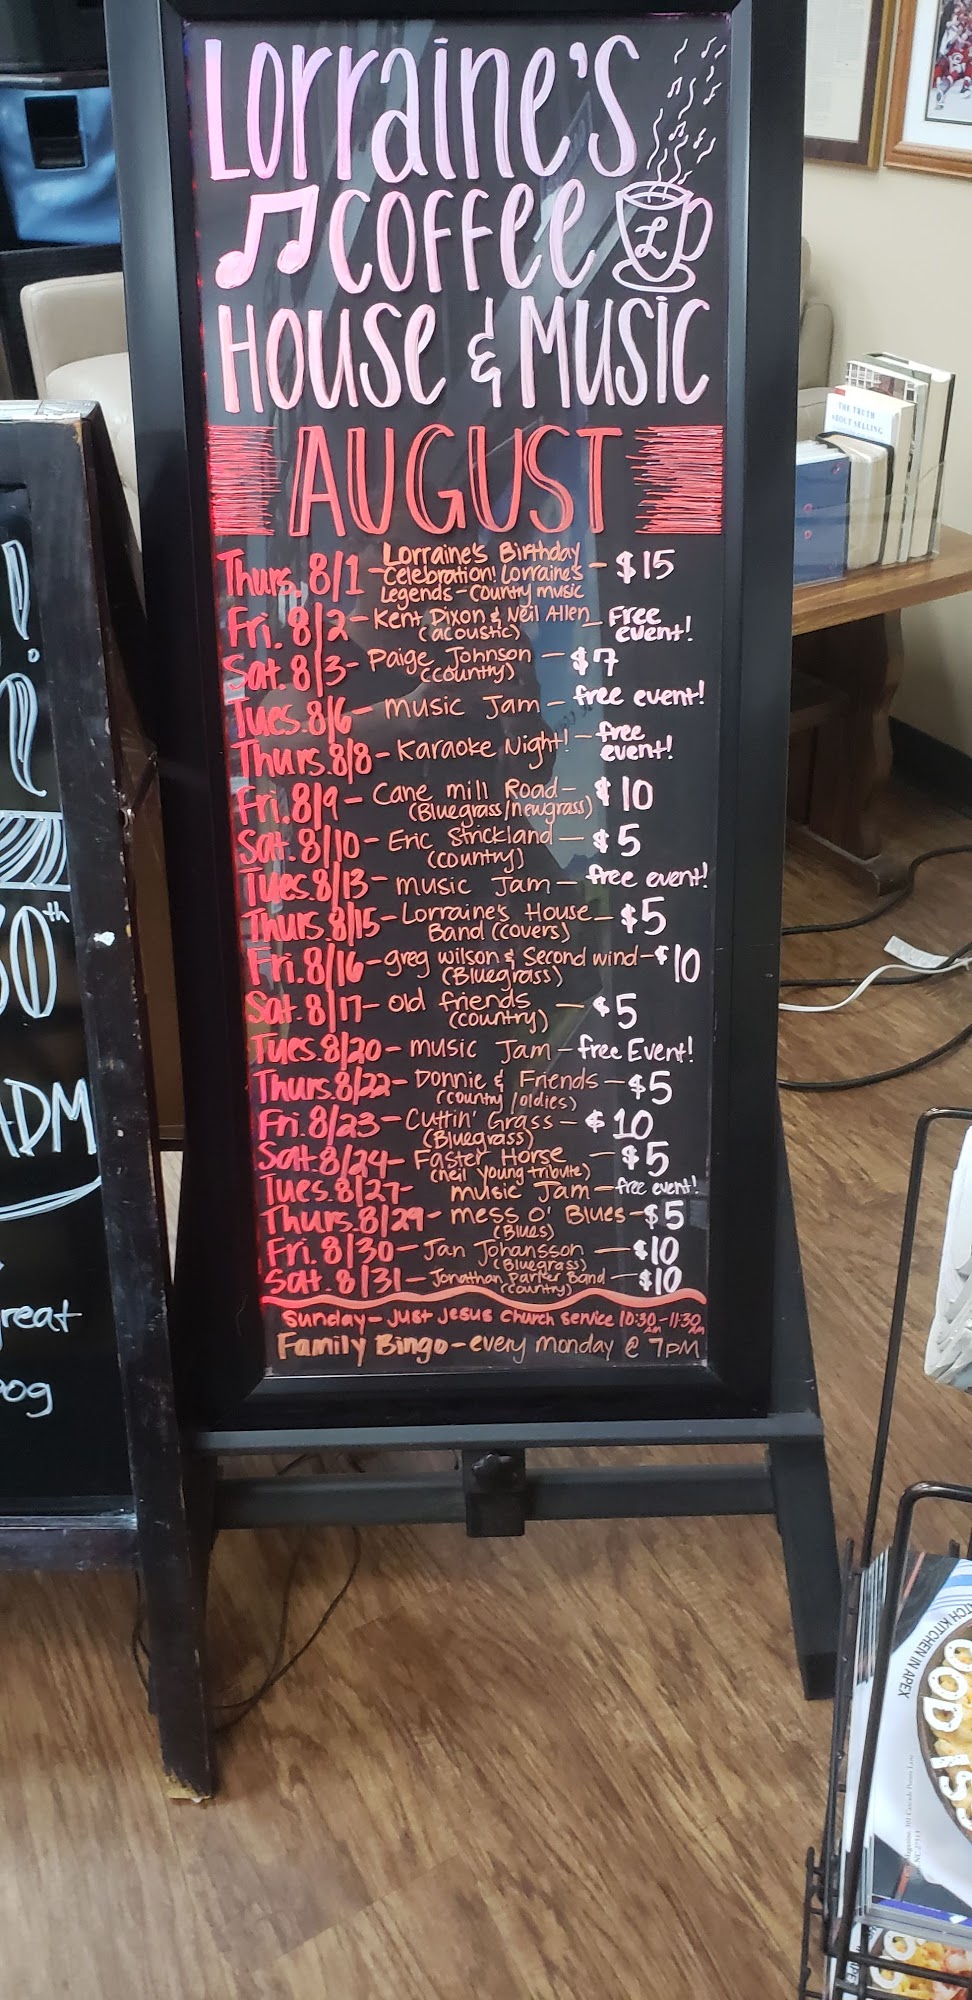 Lorraine's
Coffee
L
House & Music
AUGUST
Thurs. 8/1 - Lorraine's Birthday
Celebration! Lorraine's - $15
Legends - Country music
Fri. 8/2 - Kent Dixon & Neil Allen - Free
(acoustic) event!
Sat. 8/3 - Paige Johnson - $7
(country)
Tues. 8/6 - music Jam - free event!
Thurs. 8/8 - Karaoke Night! - free
event!
Fri. 8/9 - Cane mill Road - $10
(Bluegrass/newgrass)
Sat. 8/10 - Eric Strickland - $5
(country)
Tues. 8/13 - music Jam - free event!
Thurs. 8/15 - Lorraine's House - $5
Band (covers)
Fri. 8/16 - greg wilson & Second wind - $10
(Bluegrass)
Sat. 8/17 - old friends - $5
(country)
Tues. 8/20 - music Jam - free Event!
Thurs. 8/22 - Donnie & Friends - $5
(country/oldies)
Fri. 8/23 - Cuttin' Grass - $10
(Bluegrass)
Sat. 8/24 - Faster Horse - $5
(neil young tribute)
Tues. 8/27 - music Jam - free event!
Thurs. 8/29 - mess o' Blues - $5
(Blues)
Fri. 8/30 - Jan Johansson - $10
(Bluegrass)
Sat. 8/31 - Jonathan Parker Band - $10
(country)
Sunday - Just Jesus Church Service 10:30 AM - 11:30 AM
Family Bingo - every monday @ 7PM
THE TRUTH
ABOUT SELLING
th
ADM
reat
KITCHEN IN APEX